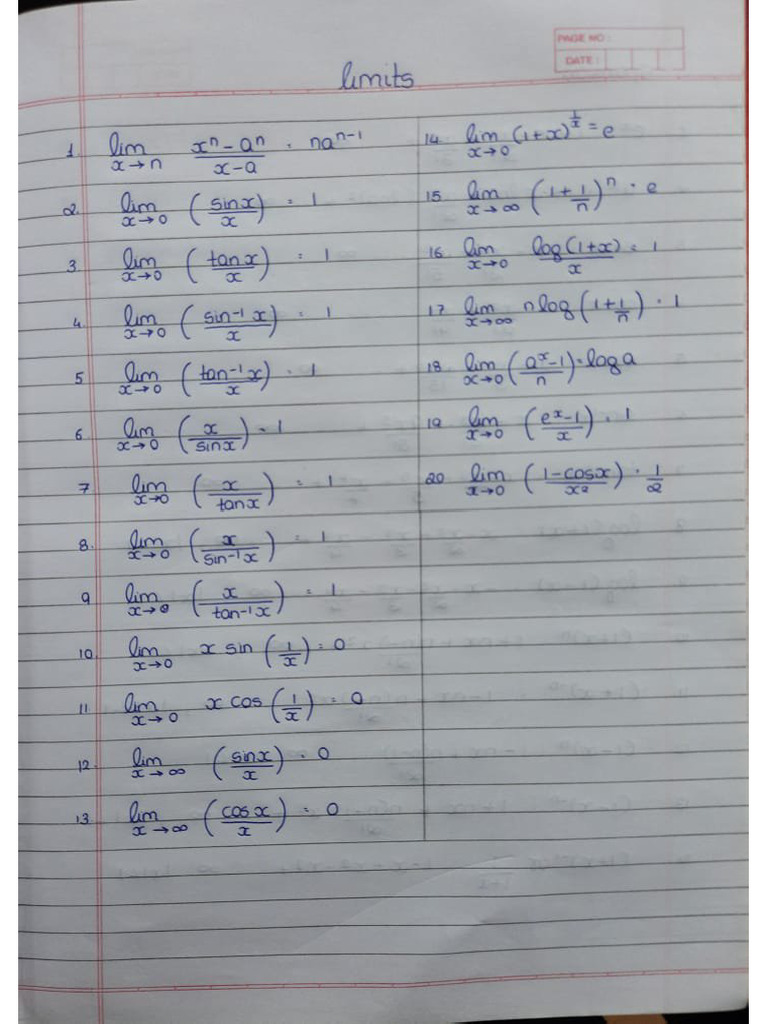 PAGE NO:
DATE:
limits
1. lim x→n (xⁿ - aⁿ)/(x-a) = naⁿ⁻¹
2. lim x→0 (sinx/x) = 1
3. lim x→0 (tanx/x) = 1
4. lim x→0 (sin⁻¹x/x) = 1
5. lim x→0 (tan⁻¹x/x) = 1
6. lim x→0 (x/sinx) = 1
7. lim x→0 (x/tanx) = 1
8. lim x→0 (x/sin⁻¹x) = 1
9. lim x→0 (x/tan⁻¹x) = 1
10. lim x→0 x sin (1/x) = 0
11. lim x→0 x cos (1/x) = 0
12. lim x→∞ (sinx/x) = 0
13. lim x→∞ (cosx/x) = 0
14. lim x→0 (1+x)^(1/x) = e
15. lim x→∞ (1+1/n)ⁿ = e
16. lim x→0 log(1+x)/x = 1
17. lim x→∞ n log (1+1/n) = 1
18. lim x→0 (aˣ-1/n) = log a
19. lim x→0 (eˣ-1/x) = 1
20. lim x→0 (1-cosx/x²) = 1/2